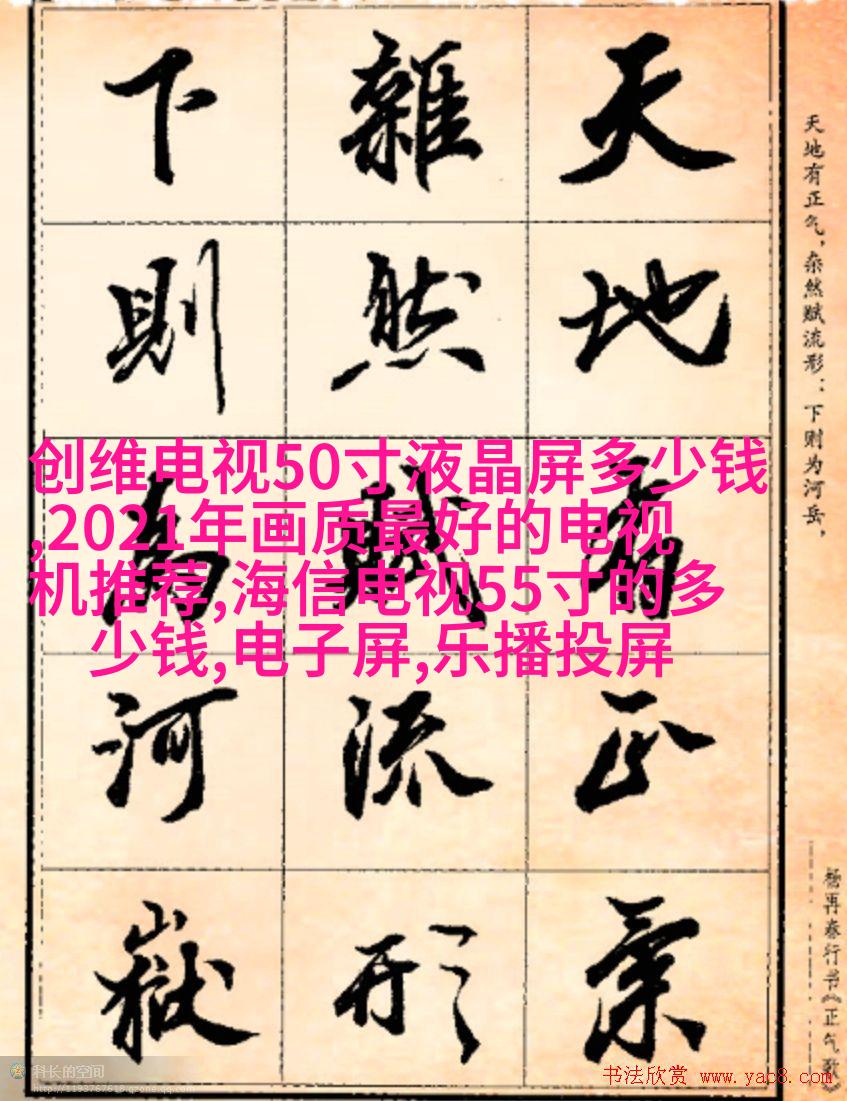 天地有正氣
雜然賦流形
下則為河嶽
天地有正气，杂然赋流形：下则为河岳，
杨再春行书《正气歌》
创维电视50寸液晶屏多少钱
,2021年画质最好的电视
机推荐,海信电视55寸的多
少钱,电子屏,乐播投屏
科长的空间
http://1193767618.qzone.qq.com
书法欣赏 www.yac8.com